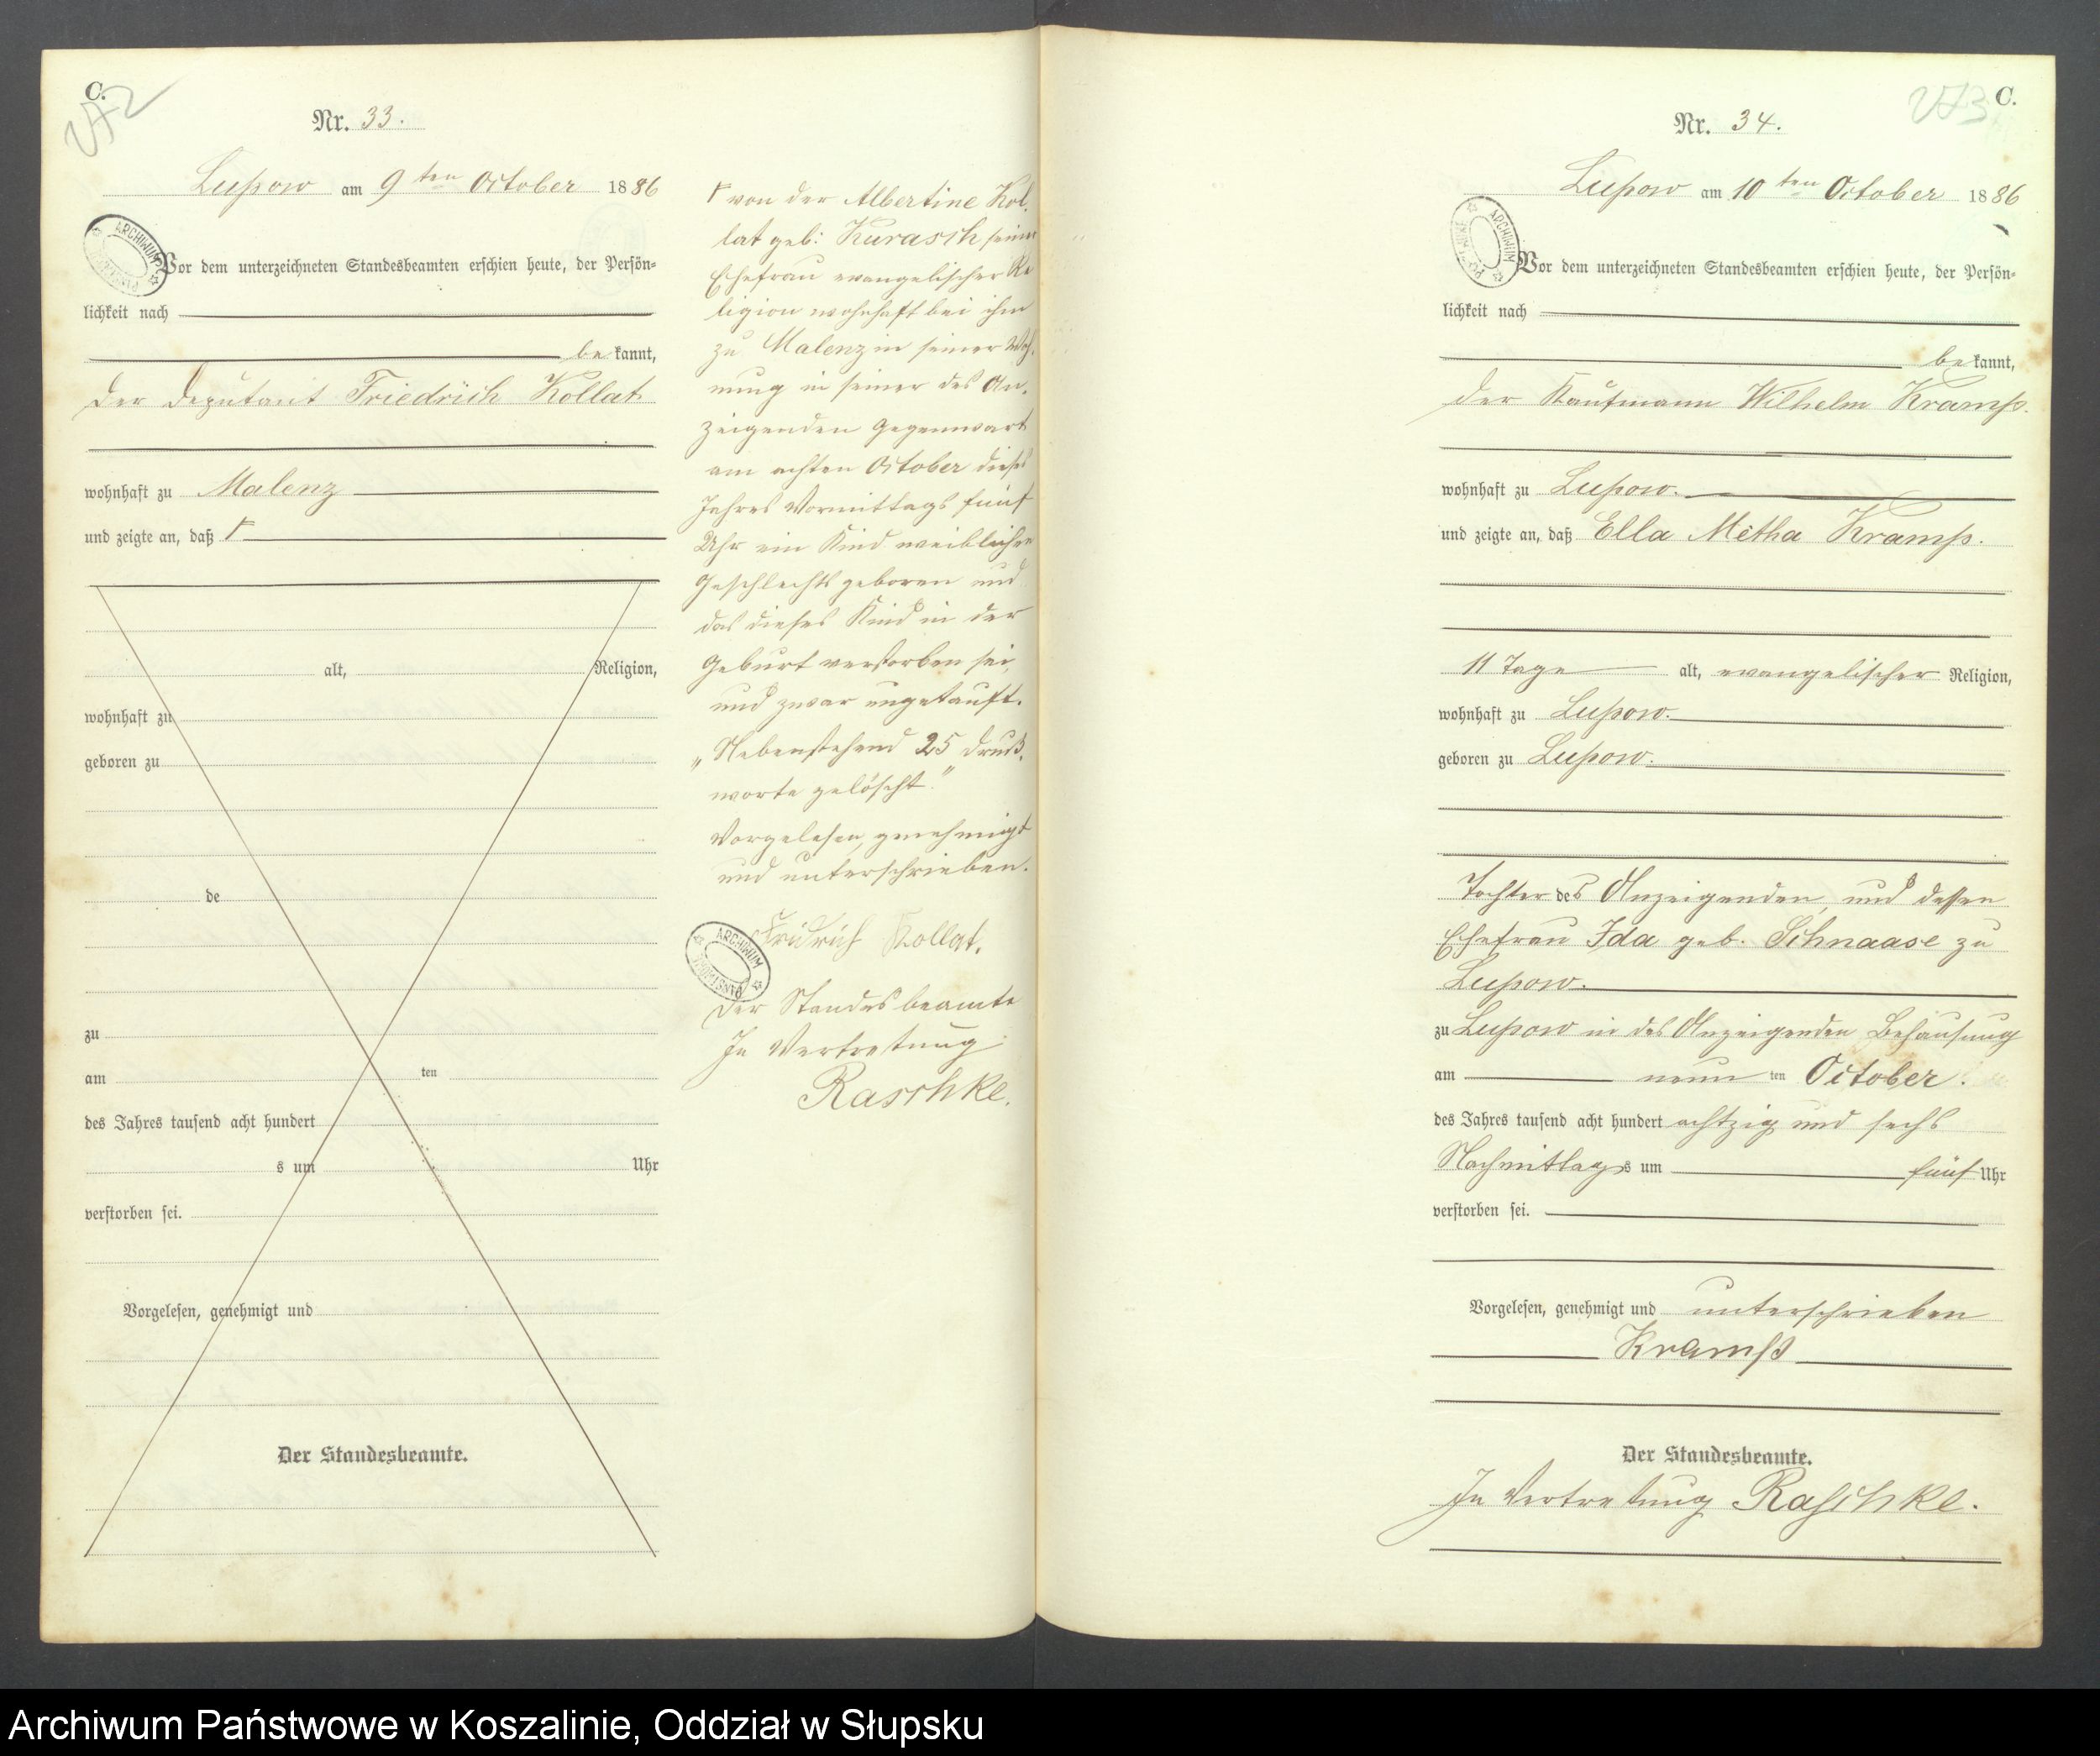 C.
272
Nr. 33.
Lupow am 9ten October 1886
ARCHIWUM
Vor dem unterzeichneten Standesbeamten erschien heute, der Persön-
lichkeit nach
bekannt,
der Deputant Friedrich Kollat
wohnhaft zu Malenz
und zeigte an, daß Γ
alt, Religion,
wohnhaft zu
geboren zu
de
zu
am ten
des Jahres tausend acht hundert
s um Uhr
verstorben sei.
Vorgelesen, genehmigt und
Der Standesbeamte.
Γ von der Albertine Kol-
lat geb: Kurasch seiner
Ehefrau evangelischer Re
ligion wohnhaft bei ihm
zu Malenz in seiner Woh-
nung in seiner des An-
zeigenden Gegenwart
am achten October dieses
Jahres Vormittags fünf
Uhr ein Kind weiblichen
Geschlechts geboren und
das dieses Kind in der
Geburt verstorben sei,
und zwar ungetauft.
„Nebenstehend 25 Druck-
worte gelöscht."
Vorgelesen, genehmigt
und unterschrieben.
Fridrich Kollat.
ARCHIWUM
Der Standesbeamte
In Vertretung
Raschke.
273 C.
Nr. 34.
Lupow am 10ten October 1886
ARCHIWUM
Vor dem unterzeichneten Standesbeamten erschien heute, der Persön-
lichkeit nach
bekannt,
der Kaufmann Wilhelm Kramp.
wohnhaft zu Lupow.
und zeigte an, daß Ella Metha Kramp.
11 Tage alt, evangelischer Religion,
wohnhaft zu Lupow.
geboren zu Lupow.
Tochter des Anzeigenden, und dessen
Ehefrau Ida geb. Schnaase zu
Lupow.
zu Lupow in des Anzeigenden Behausung
am neunten October.
des Jahres tausend acht hundert achtzig und sechs
Nachmittags um fünf Uhr
verstorben sei.
Vorgelesen, genehmigt und unterschrieben
Kramp
Der Standesbeamte.
In Vertretung Raschke.
Archiwum Państwowe w Koszalinie, Oddział w Słupsku